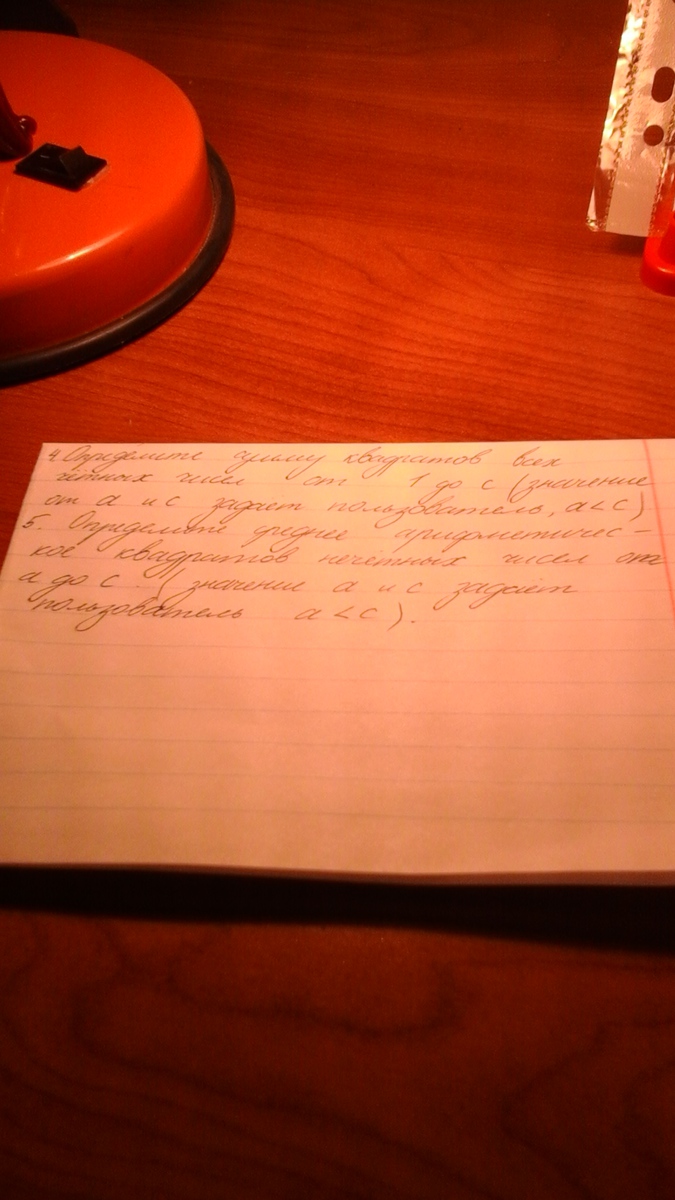 4. Определите сумму квадратов всех
чётных чисел от 1 до c (значение
от a и c задаёт пользователь, a < c)
5. Определите среднее арифметичес-
кое квадратов нечётных чисел от
a до c (значение a и c задаёт
пользователь a < c).